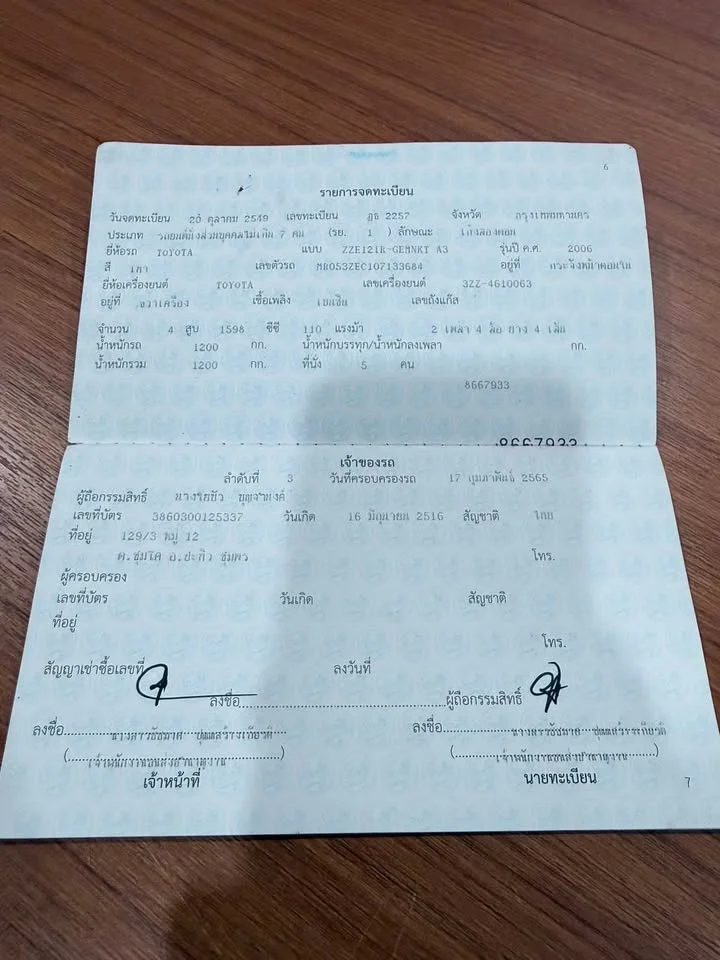 6
รายการจดทะเบียน
วันจดทะเบียน 20 ตุลาคม 2549 เลขทะเบียน 2257 จังหวัด กรุงเทพมหานคร
ประเภท รถยนต์นั่งส่วนบุคคลไม่เกิน 7 คน (รย. 1 ) ลักษณะ เก๋งสองตอน
ยี่ห้อรถ TOYOTA แบบ ZZE121R-GEMNKT A3 รุ่นปี ค.ศ. 2006
สี เทา เลขตัวรถ MR053ZEC107133684 อยู่ที่
ยี่ห้อเครื่องยนต์ TOYOTA เลขเครื่องยนต์ 3ZZ-4610063
อยู่ที่ ขวาเครื่อง เชื้อเพลิง เบนซิน เลขถังแก๊ส
จำนวน 4 สูบ 1598 ซีซี 110 แรงม้า 2 เพลา 4 ล้อ ยาง 4 เส้น
น้ำหนักรถ 1200 กก. น้ำหนักบรรทุก/น้ำหนักลงเพลา กก.
น้ำหนักรวม 1200 กก. ที่นั่ง 5 คน
8667933
8667933
เจ้าของรถ
ลำดับที่ 3 วันที่ครอบครองรถ 17 กุมภาพันธ์ 2565
ผู้ถือกรรมสิทธิ์
เลขที่บัตร 3860300125337 วันเกิด 16 มิถุนายน 2516 สัญชาติ ไทย
ที่อยู่ 129/3 หมู่ 12
ต.ชุมโค อ.ปะทิว ชุมพร โทร.
ผู้ครอบครอง
เลขที่บัตร วันเกิด สัญชาติ
ที่อยู่
โทร.
สัญญาเช่าซื้อเลขที่ ลงวันที่
ลงชื่อ ผู้ถือกรรมสิทธิ์
ลงชื่อ ลงชื่อ
(เจ้าพนักงานขนส่งชำนาญงาน) (เจ้าพนักงานขนส่งชำนาญงาน)
เจ้าหน้าที่ นายทะเบียน
7